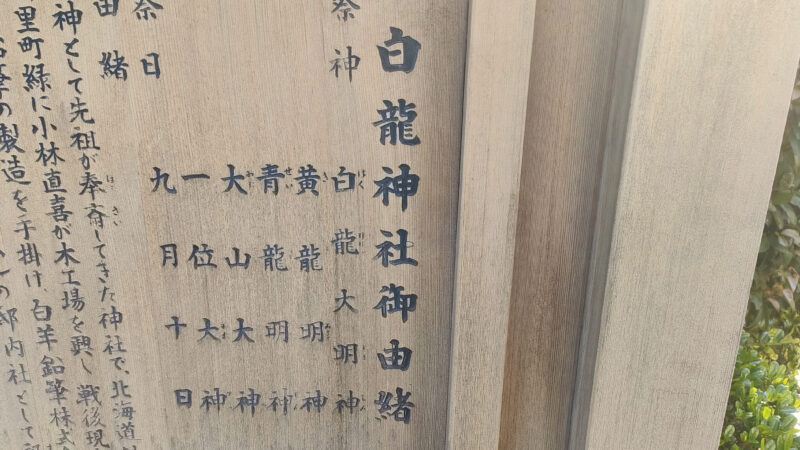 白龍神社御由緒
祭神 白龍大明神
黄龍明神
青龍明神
大山大神
一位大神
祭日 九月十日
由緒
神として先祖が奉斎してきた神社で、北海道
里町緑に小林直喜が木工場を興し戦後現
筆の製造を手掛け、白羊鉛筆株式
の邸内社として